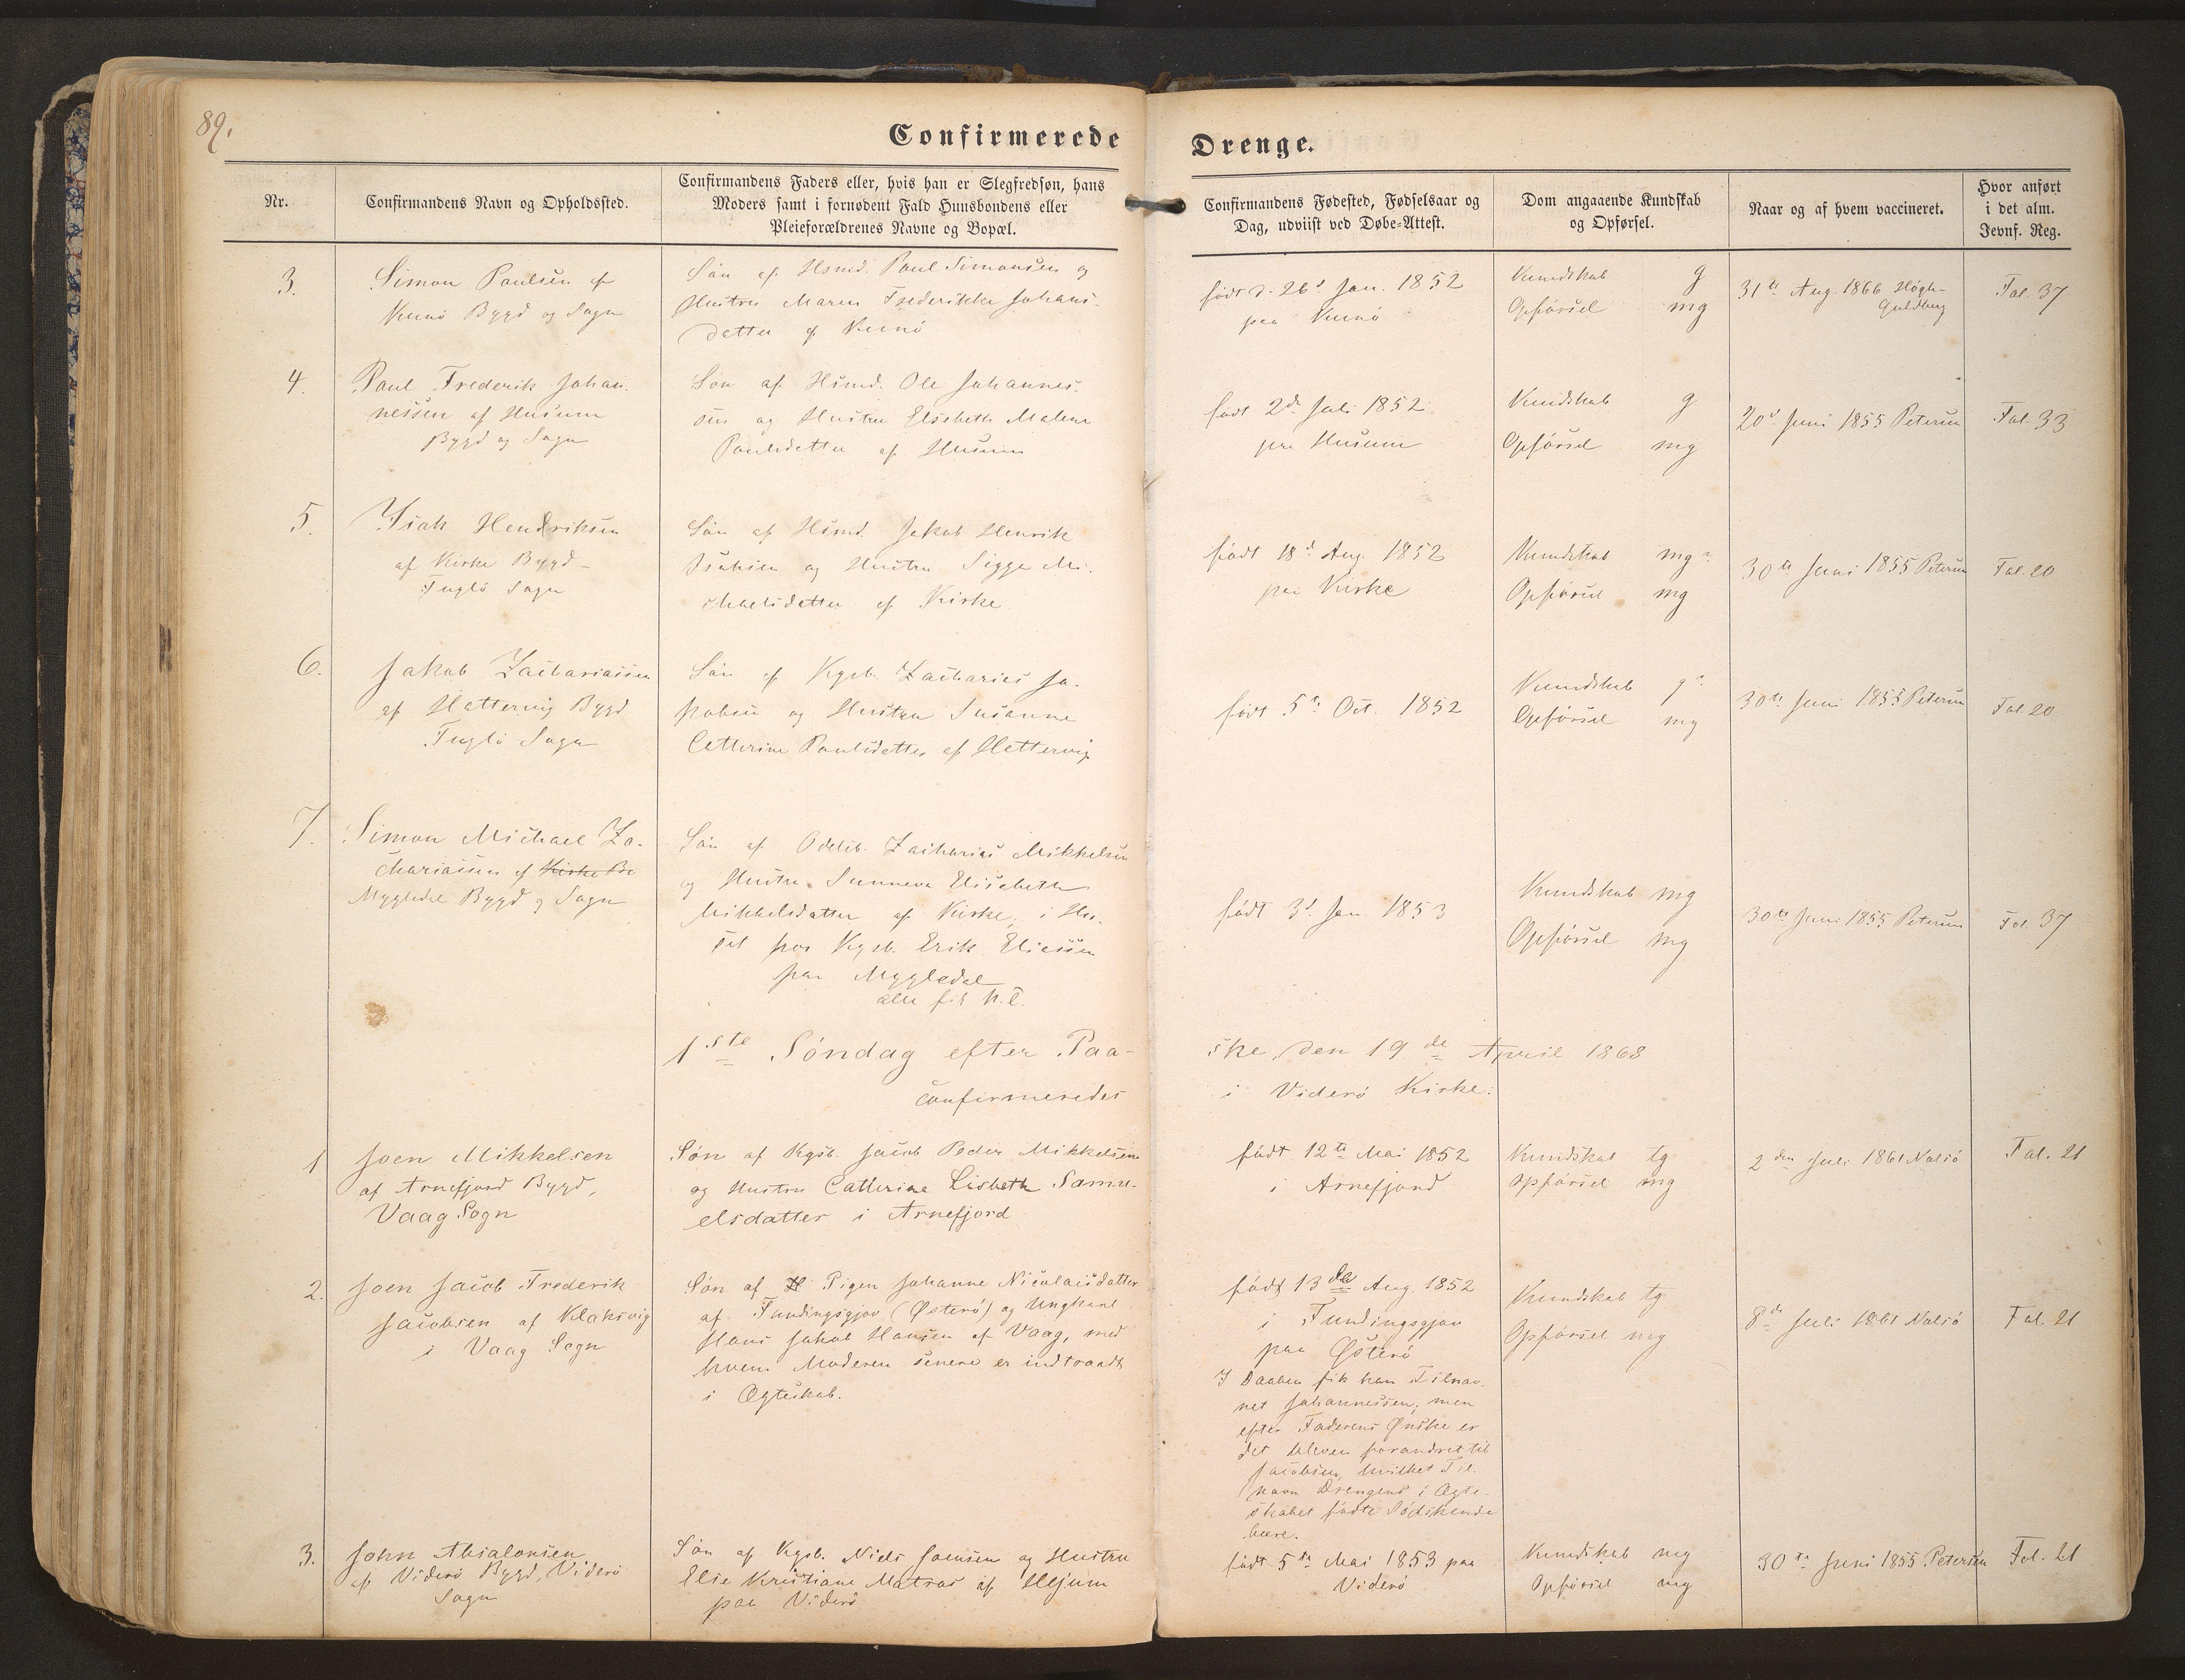 89.
Confirmerede
Drenge.
Nr.
Confirmandens Navn og Opholdssted.
Confirmandens Faders eller, hvis han er Slegfredsøn, hans
Moders samt i fornødent Fald Huusbondens eller
Pleieforældrenes Navne og Bopæl.
Confirmandens Fødested, Fødselsaar og
Dag, udviist ved Døbe-Attest.
Dom angaaende Kundskab
og Opførsel.
Naar og af hvem vaccineret.
Hvor anført
i det alm.
Jevnf. Reg.
3.
Simon Paulsen af
Kunø Bygd og Sogn
Søn af Hsmd. Paul Simonsen og
Hustru Maren Frederikke Johans-
datter af Kunø
født d. 26d Jan. 1852
paa Kunø
Kundskab g
Opførsel mg
31te Aug. 1866 Høgh-
Guldberg
Fol. 37
4.
Poul Frederik Johan-
nessen af Husum
Bygd og Sogn
Søn af Hsmd. Ole Johannes-
sen og Hustru Elsebeth Malene
Poulsdatter af Husum
født 2de Juli 1852
paa Husum
Kundskab g
Opførsel mg
20d Juni 1855 Petersen
Fol. 33
5.
Isak Hendriksen
af Kirke Bygd
Fuglø Sogn
Søn af Hsmd. Jakob Henrik
Isaksen og Hustru Sigga Mi-
chaelsdatter af Kirke
født 18d Aug. 1852
paa Kirke
Kundskab mg?
Opførsel mg
30te Juni 1855 Petersen
Fol. 20
6.
Jakob Zachariassen
af Hattervig Bygd
Fuglø Sogn
Søn af Kgsb. Zacharias Ja-
kobsen og Hustru Susanne
Catherine Poulsdatter af Hattervig
født 5te Oct. 1852
Kundskab g?
Opførsel mg
30te Juni 1855 Petersen
Fol. 20
7.
Simon Michael Za-
chariassen af Kirke By
Mygledal Bygd og Sogn
Søn af Odelsb. Zacharias Mikkelsen
og Hustru Sunneva Elisabeth
Mikkelsdatter af Kirke, i Hu-
set hos Kgsb. Erik Eliassen
paa Mygledal
alle fik
født 3d Jan. 1853
Kundskab mg
Opførsel mg
30te Juni 1855 Petersen
Fol. 37
1ste Søndag efter Paa-
ske, den 19de April 1868
confirmeredes
i Viderø Kirke:
1
Joen Mikkelsen
af Arnefjord Bygd,
Vaag Sogn
Søn af Kgsb. Jacob Peder Mikkelsen
og Hustru Catherine Lisbeth Samu-
elsdatter i Arnefjord
født 12te Mai 1852
i Arnefjord
Kundskab tg
Opførsel mg
2den Juli 1861 Nolsø
Fol. 21
2.
Joen Jacob Frederik
Jacobsen af Klaksvig
i Vaag Sogn
Søn af Pigen Johanne Nicolaisdatter
af Fundingsgjov (Østerø) og Ungkarl
Hans Jakob Hansen af Vaag, med
hvem Moderen senere er indtraadt
i Ægteskab.
født 13de Aug. 1852
i Fundingsgjov
paa Østerø
I Daaben fik han Tilnav-
net Johannessen, men
efter Faderens Ønske er
det bleven forandret til
Jacobsen, hvilket Til-
navn Drengens i Ægte-
skabet fødte Sødskende
bære.
Kundskab tg
Opførsel mg
8de Juli 1861 Nolsø
Fol. 21
3.
John Absalonsen
af Viderø Bygd, Viderø
Sogn
Søn af Kgsb. Niels Joensen og Hustru
Else Kristiane Matras af
paa Viderø
født 5te Mai 1853 paa
Viderø
Kundskab mg
Opførsel mg
30te Juni 1855 Petersen
Fol. 21